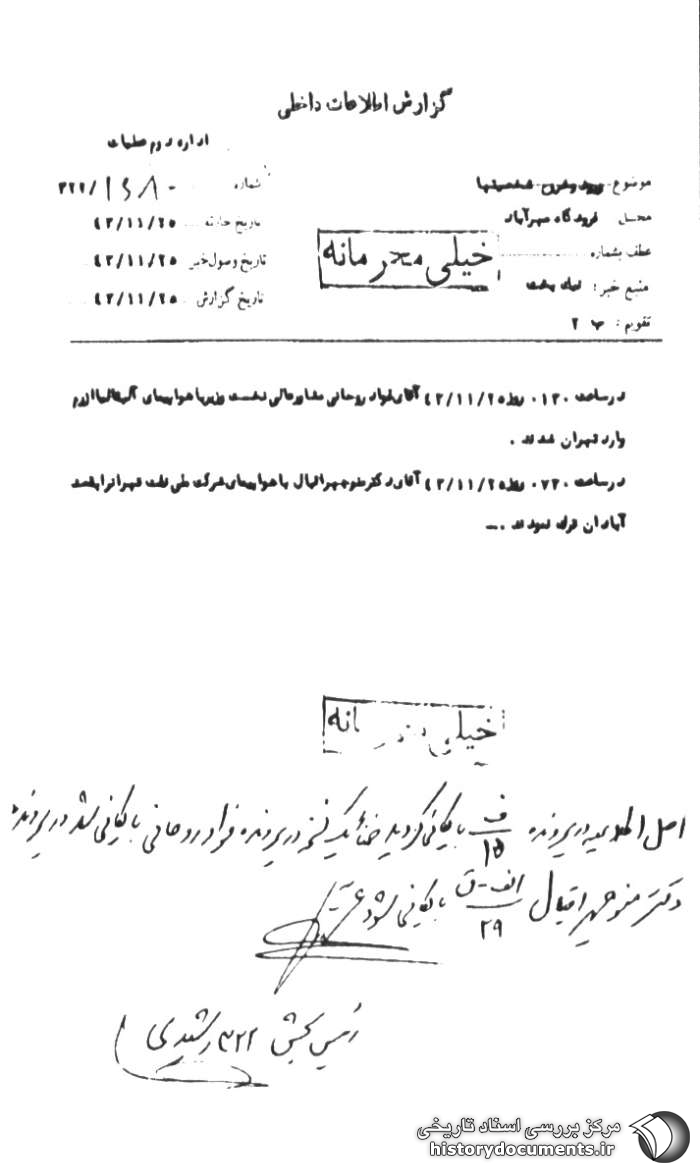 گزارش اطلاعات داخلی
اداره دوم عملیات
موضوع ورود و خروج شخصیتها
شماره ۳۲۲/۱۶۸۰
محل فرودگاه مهرآباد
تاریخ حادثه ۴۳/۱۱/۲۵
عطف بشماره
خیلی محرمانه
تاریخ وصول خبر ۴۳/۱۱/۲۵
منبع خبر:
تاریخ گزارش ۴۳/۱۱/۲۵
تقویم:
در ساعت ۰۱۳۰ روز ۴۳/۱۱/۲۵ آقای فواد روحانی مشاور عالی نخست وزیر با هواپیمای آلیتالیا از رم
وارد تهران شدند .
در ساعت ۰۷۳۰ روز ۴۳/۱۱/۲۵ آقای دکتر منوچهر اقبال با هواپیمای شرکت ملی نفت تهران را بقصد
آبادان ترک نمودند .
خیلی
اصل اطلاعیه در پرونده ف/۱۵ بایگانی گردید ضمناً یک نسخه در پرونده فواد روحانی بایگانی شد در پرونده
دکتر منوچهر اقبال الف-ق/۲۹ بایگانی شود
رئیس بخش ۳۲۲ رشیدی
مرکز بررسی اسناد تاریخی
historydocuments.ir